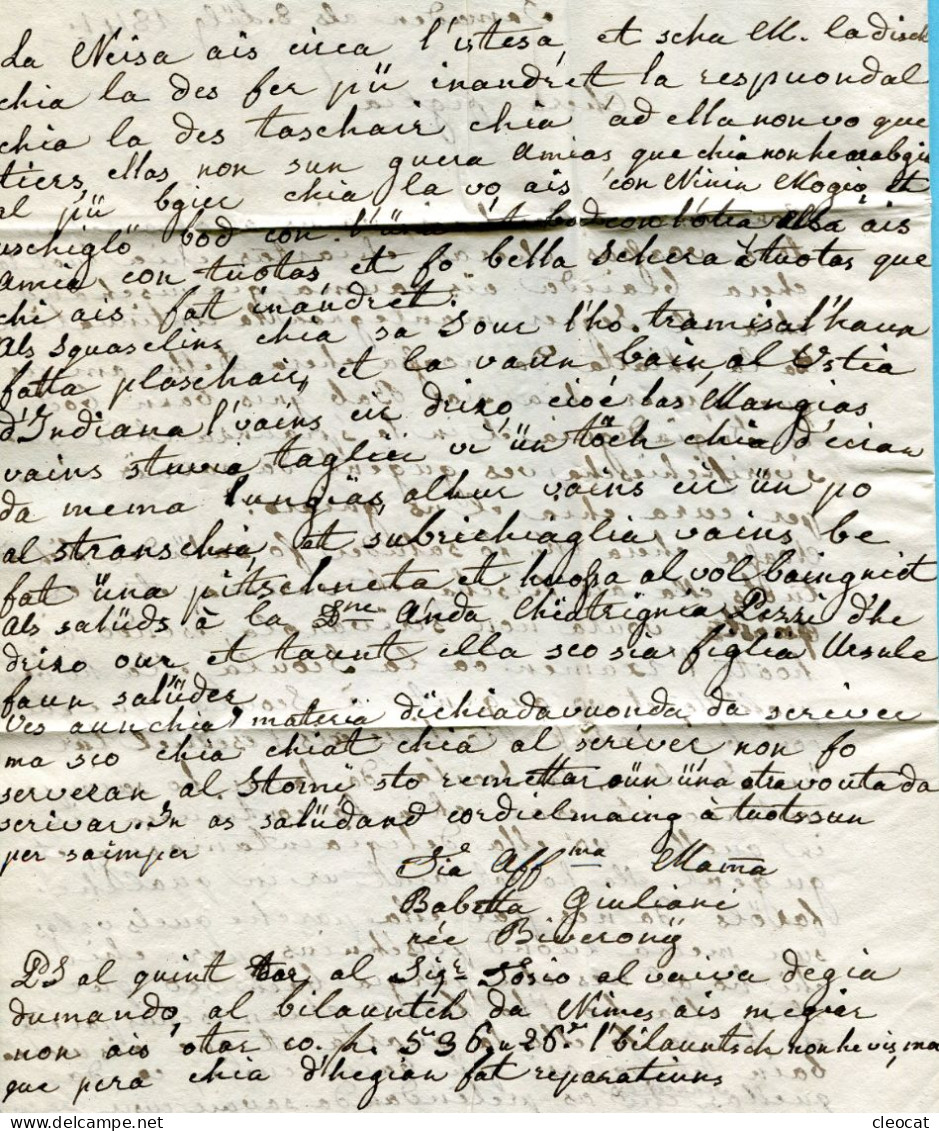 La Neisa ais circa l'istesa, et scha M. la disch
chia la des fer pü inandret la respuondal
chia la des taschair chia ad ella non vo que
tiers, ellas non sun guera amias que chia non he
al pü bgier chia la vo ais con Ninin Mogio et
uschiglö bod con l'üna et bod con l'otra ella ais
amia con tuotas et fo bella Schera à tuotas que
chi ais fat inandret.
Als Squaselins chia sa Sour l'ho tramis al haun
fatta plaschair, et la vaun bain, al Ustia
d'Indiana l'vains cir drizo, cioè las Mangias
vains stuvia taglier vi ün töch chia d'eiran
da mema lungias, alhur vains cir ün po
al stranschia, et subrichiaglia vains be
fat üna pitschneta et huossa al vol baingniöt
Als salüds à la Sne Anda Chiatrignia Pezzi d'he
drizo our et taunt ella sco sia figlia Ursule
faun salüder
Ves aunchia materia dichiadavuonda da scriver
ma sco chia chiat chia al scriver non fo
serveran al Stomi sto remettar sün üna otra vouta da
scrivar. In as salüdand cordielmaing à tuots sun
per saimper
Sia Affma Mama
Babetta Giuliani
née Biveronij
PS al quint al Sigr Sosio al vaiva degia
dumando, al bilauntsch da Nimes ais megier
non ais otar co. h. 536 u 26. l'bilauntsch non he vis, ma
que pera chia d'hegian fat reparatiuns
cleocat